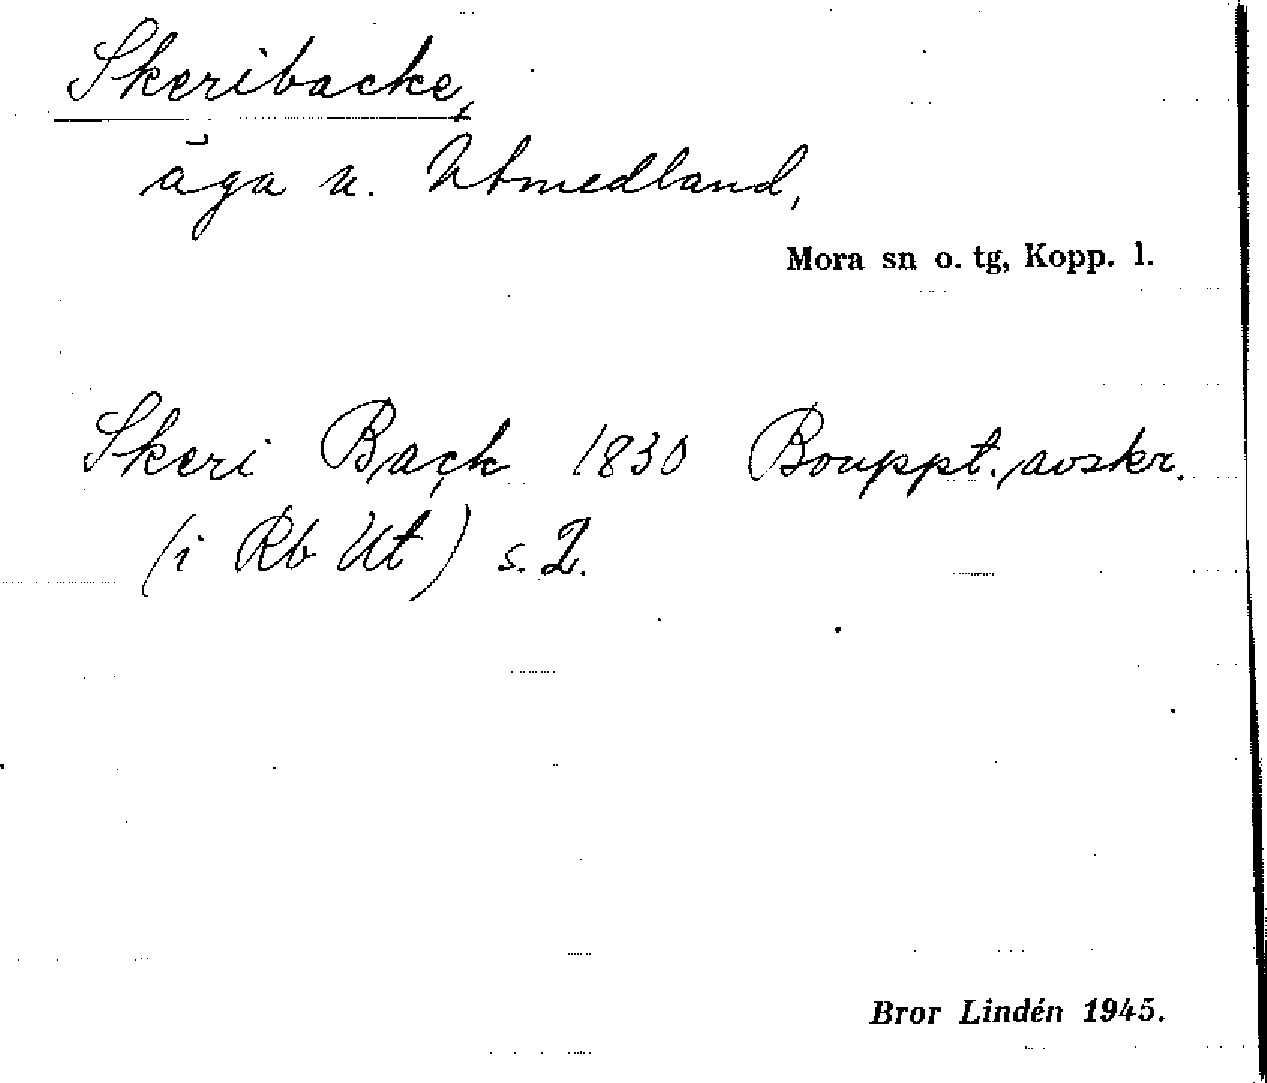 Skeribacke,
äga u. Utmedland,
Mora sn o. tg, Kopp. l.
Skeri Back 1830 Bouppt. avskr.
(i Rb Ut) s. 2.
Bror Lindén 1945.